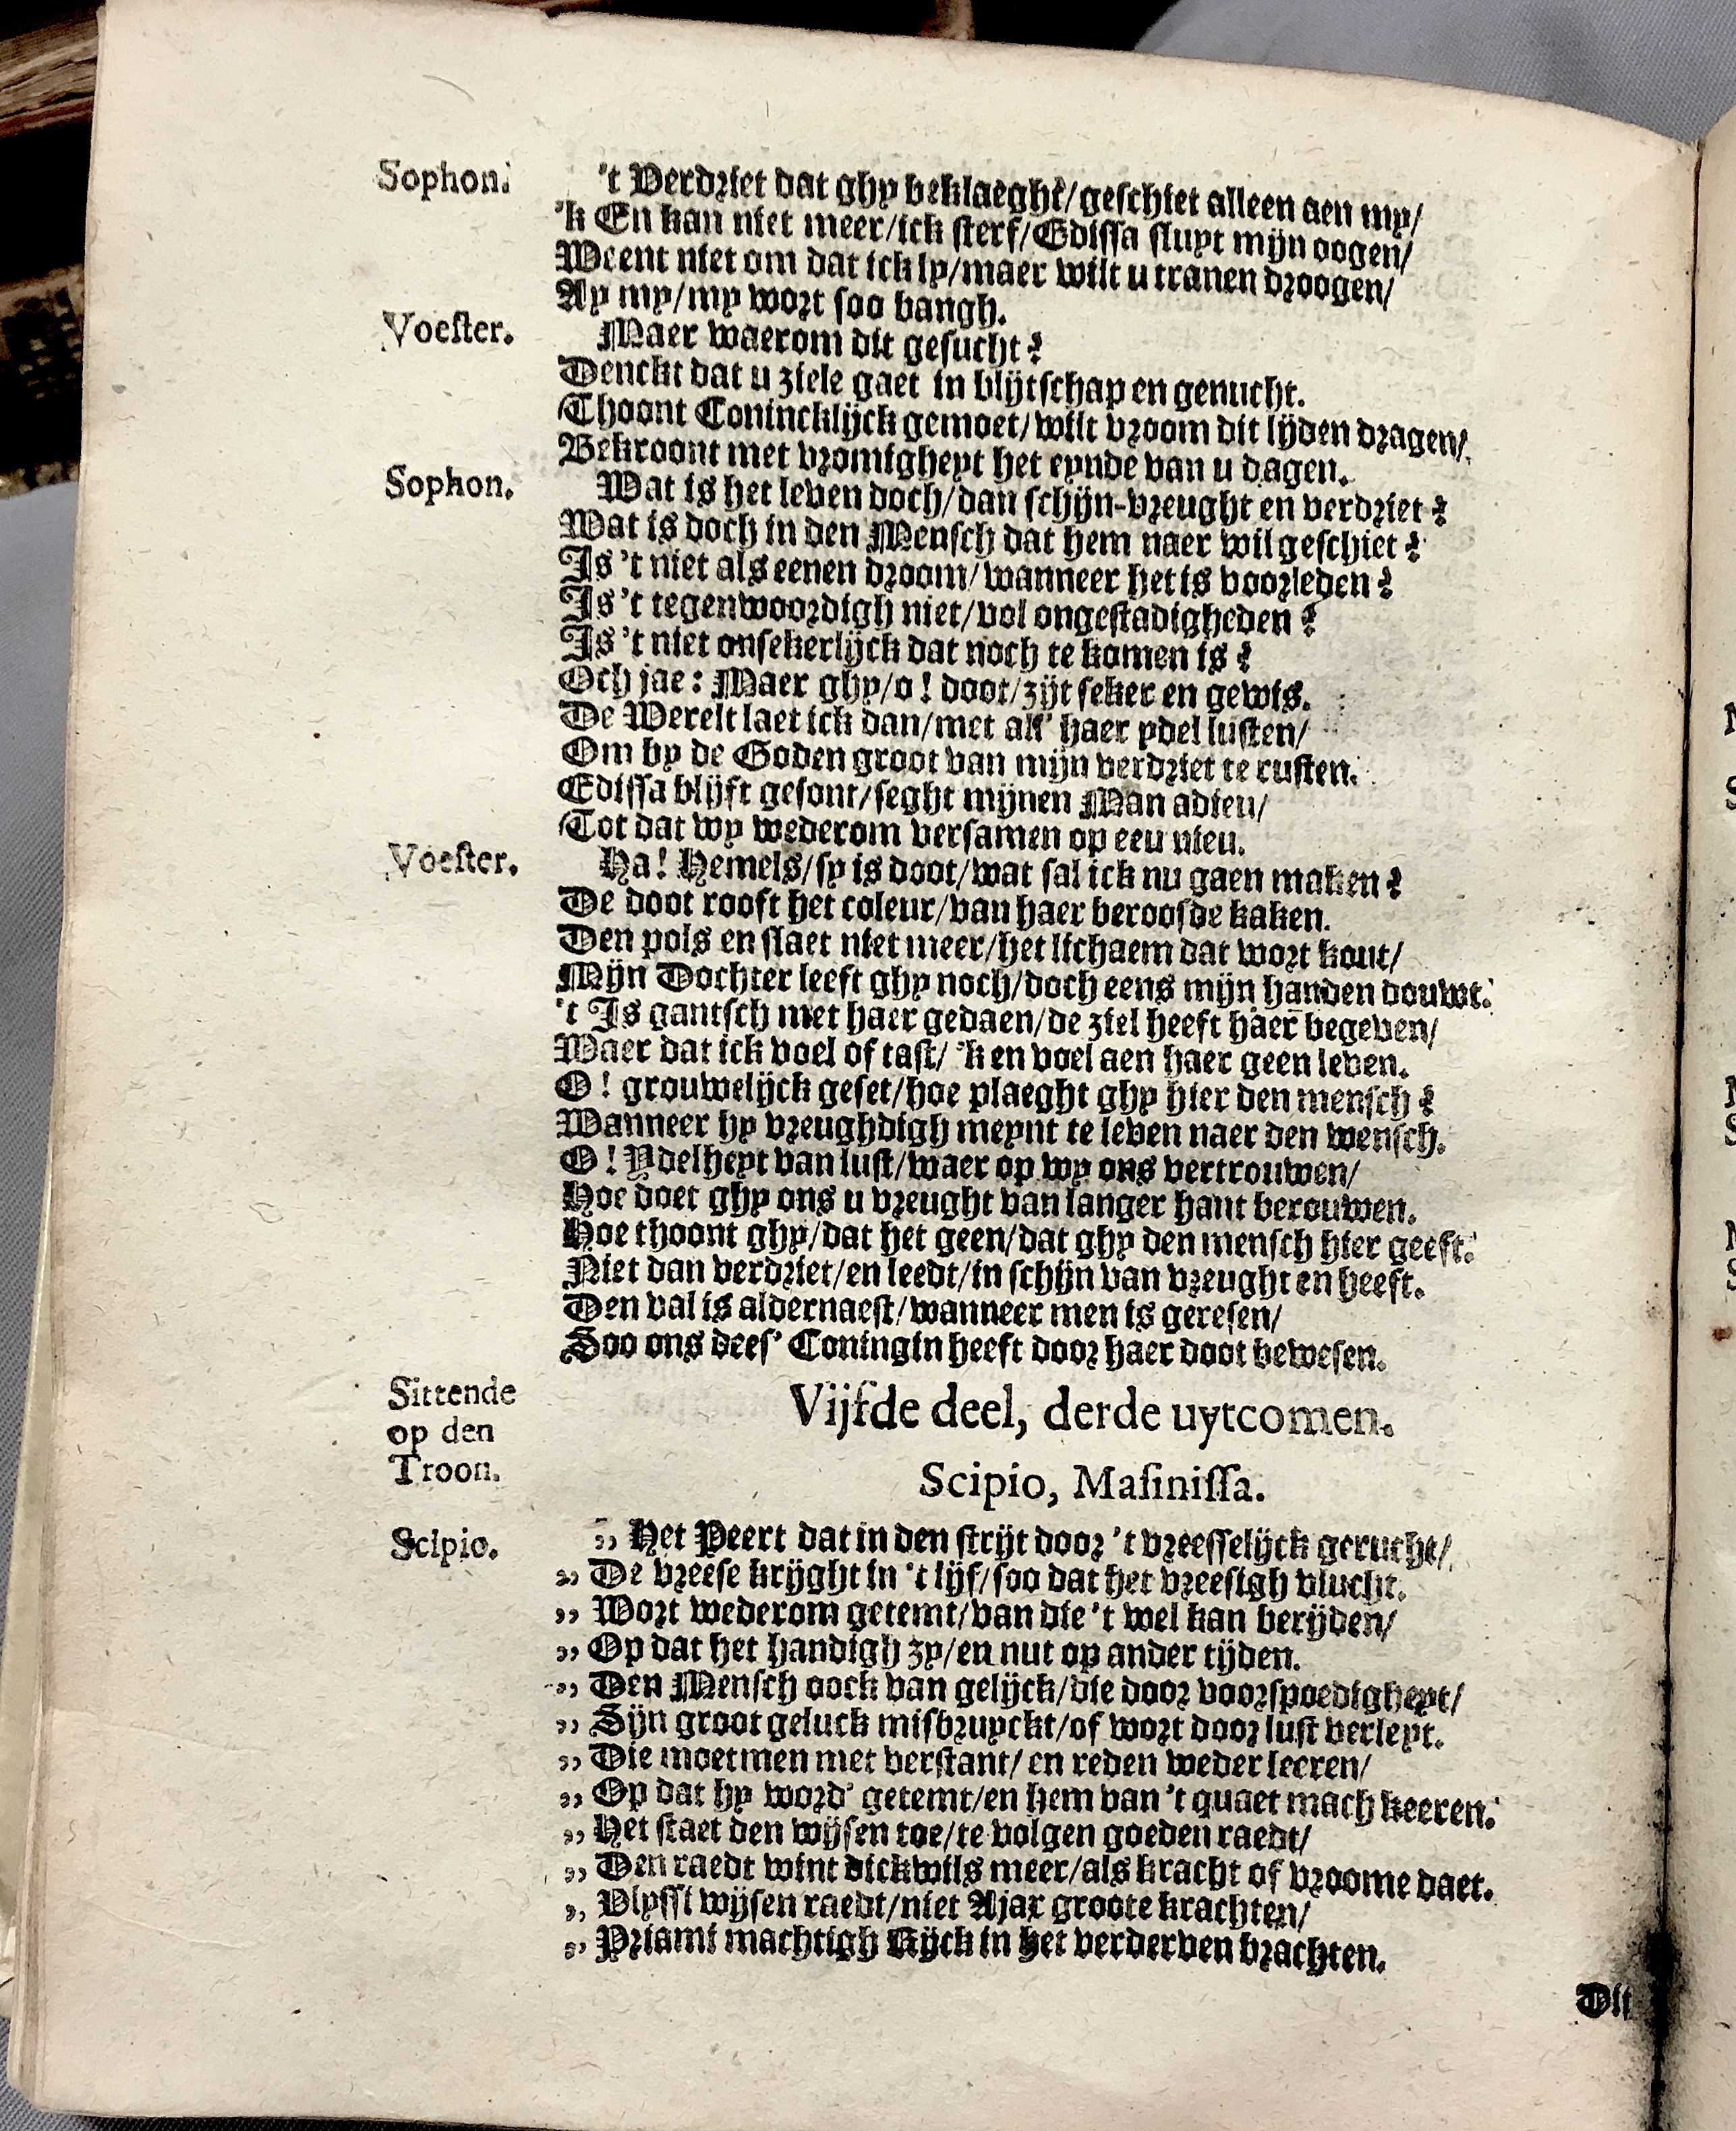 Sophon. 't Verdriet dat ghy beklaeght/geschiet alleen aen my/
'k En kan niet meer/ick sterf/Edissa sluyt mijn oogen/
Weent niet om dat ick ly/maer wilt u tranen droogen/
Ay my/my wort soo bangh.
Voester. Maer waerom dit gesucht?
Denckt dat u ziele gaet in blijtschap en genucht.
Thoont Conincklijck gemoet/wilt vroom dit lijden dragen/
Bekroont met vromigheyt het eynde van u dagen.
Sophon. Wat is het leven doch/dan schijn-vreught en verdriet?
Wat is doch in den Mensch dat hem naer wil geschiet?
Is 't niet als eenen droom/wanneer het is voorleden?
Is 't tegenwoordigh niet/vol ongestadigheden?
Is 't niet onsekerlijck dat noch te komen is?
Och jae: Maer ghy/o! doot/zijt seker en gewis.
De Werelt laet ick dan/met all' haer ydel lusten/
Om by de Goden groot van mijn verdriet te rusten.
Edissa blijft gesont/seght mijnen Man adieu/
Tot dat wy wederom versamen op eeu nieu.
Voester. Ha! Hemels/sy is doot/wat sal ick nu gaen maken?
De doot rooft het coleur/van haer beroosde kaken.
Den pols en slaet niet meer/het lichaem dat wort kout/
Mijn Dochter leeft ghy noch/doch eens mijn handen douwt.
't Is gantsch met haer gedaen/de ziel heeft haer begeven/
Waer dat ick voel of tast/ 'k en voel aen haer geen leven.
O! grouwelijck geset/hoe plaeght ghy hier den mensch?
Wanneer hy vreughdigh meynt te leven naer den wensch.
O! Ydelheyt van lust/waer op wy ons vertrouwen/
Hoe doet ghy ons u vreught van langer hant berouwen.
Hoe thoont ghy/dat het geen/dat ghy den mensch hier geeft.
Niet dan verdriet/en leedt/in schijn van vreught en heeft.
Den val is aldernaest/wanneer men is geresen/
Soo ons dees' Coningin heeft door haer doot bewesen.
Sittende
op den
Troon.
Vijfde deel, derde uytcomen.
Scipio, Masinissa.
Scipio. ,, Het Peert dat in den strijt door 't vreesselijck gerucht/
,, De vreese krijght in 't lijf/soo dat het vreesigh vlucht.
,, Wort wederom getemt/van die 't wel kan berijden/
,, Op dat het handigh zy/en nut op ander tijden.
,, Den Mensch oock van gelijck/die door voorspoedigheyt/
,, Sijn groot geluck misbruyckt/of wort door lust verleyt.
,, Die moetmen met verstant/en reden weder leeren/
,, Op dat hy word' getemt/en hem van 't quaet mach keeren.
,, Het staet den wijsen toe/te volgen goeden raedt/
,, Den raedt wint dickwils meer/als kracht of vroome daet.
,, Vlyssi wijsen raedt/niet Ajax groote krachten/
,, Priami machtigh Rijck in het verderven brachten.
Dit